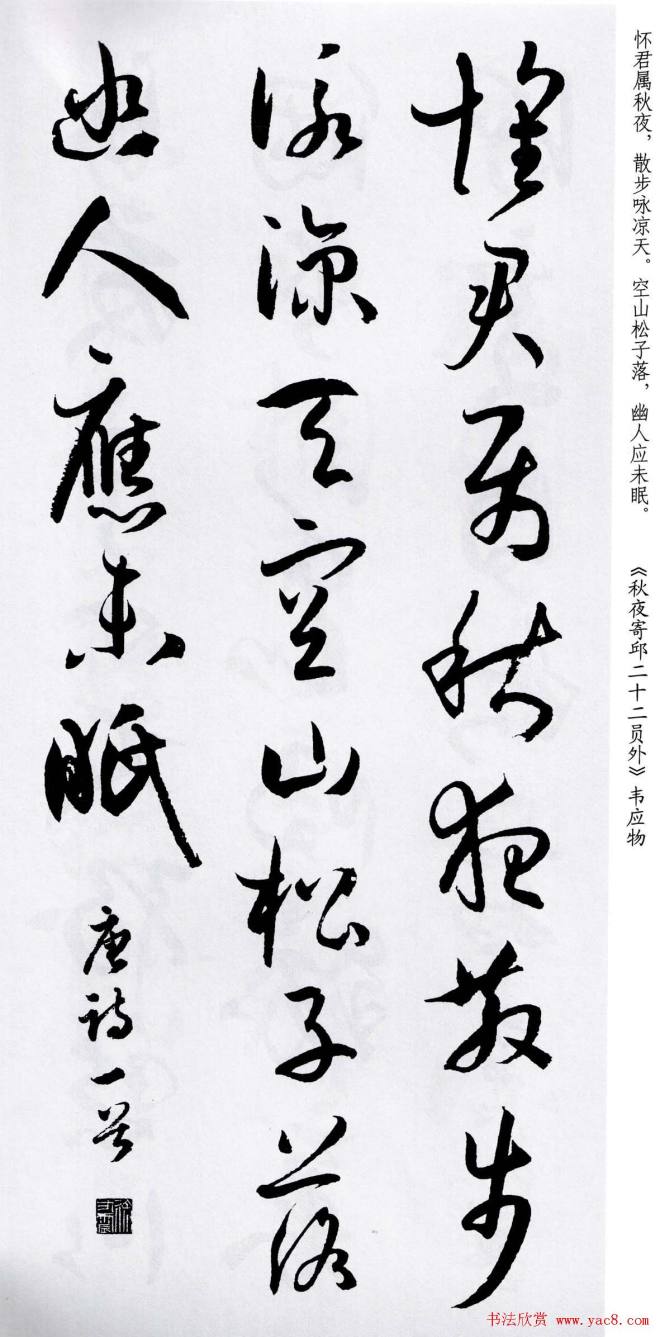 怀君属秋夜，散步咏凉天。空山松子落，幽人应未眠。
《秋夜寄邱二十二员外》韦应物
懷君屬秋夜散步
詠涼天空山松子落
幽人應未眠
唐詩一首
书法欣赏 www.yac8.com